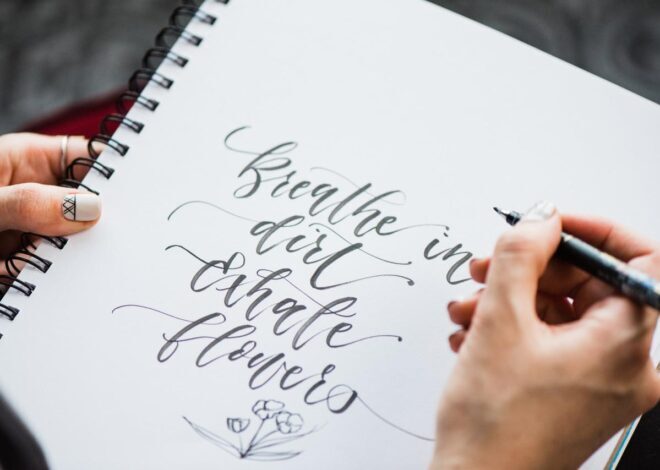 Breathe in
dirt
Exhale
flowers